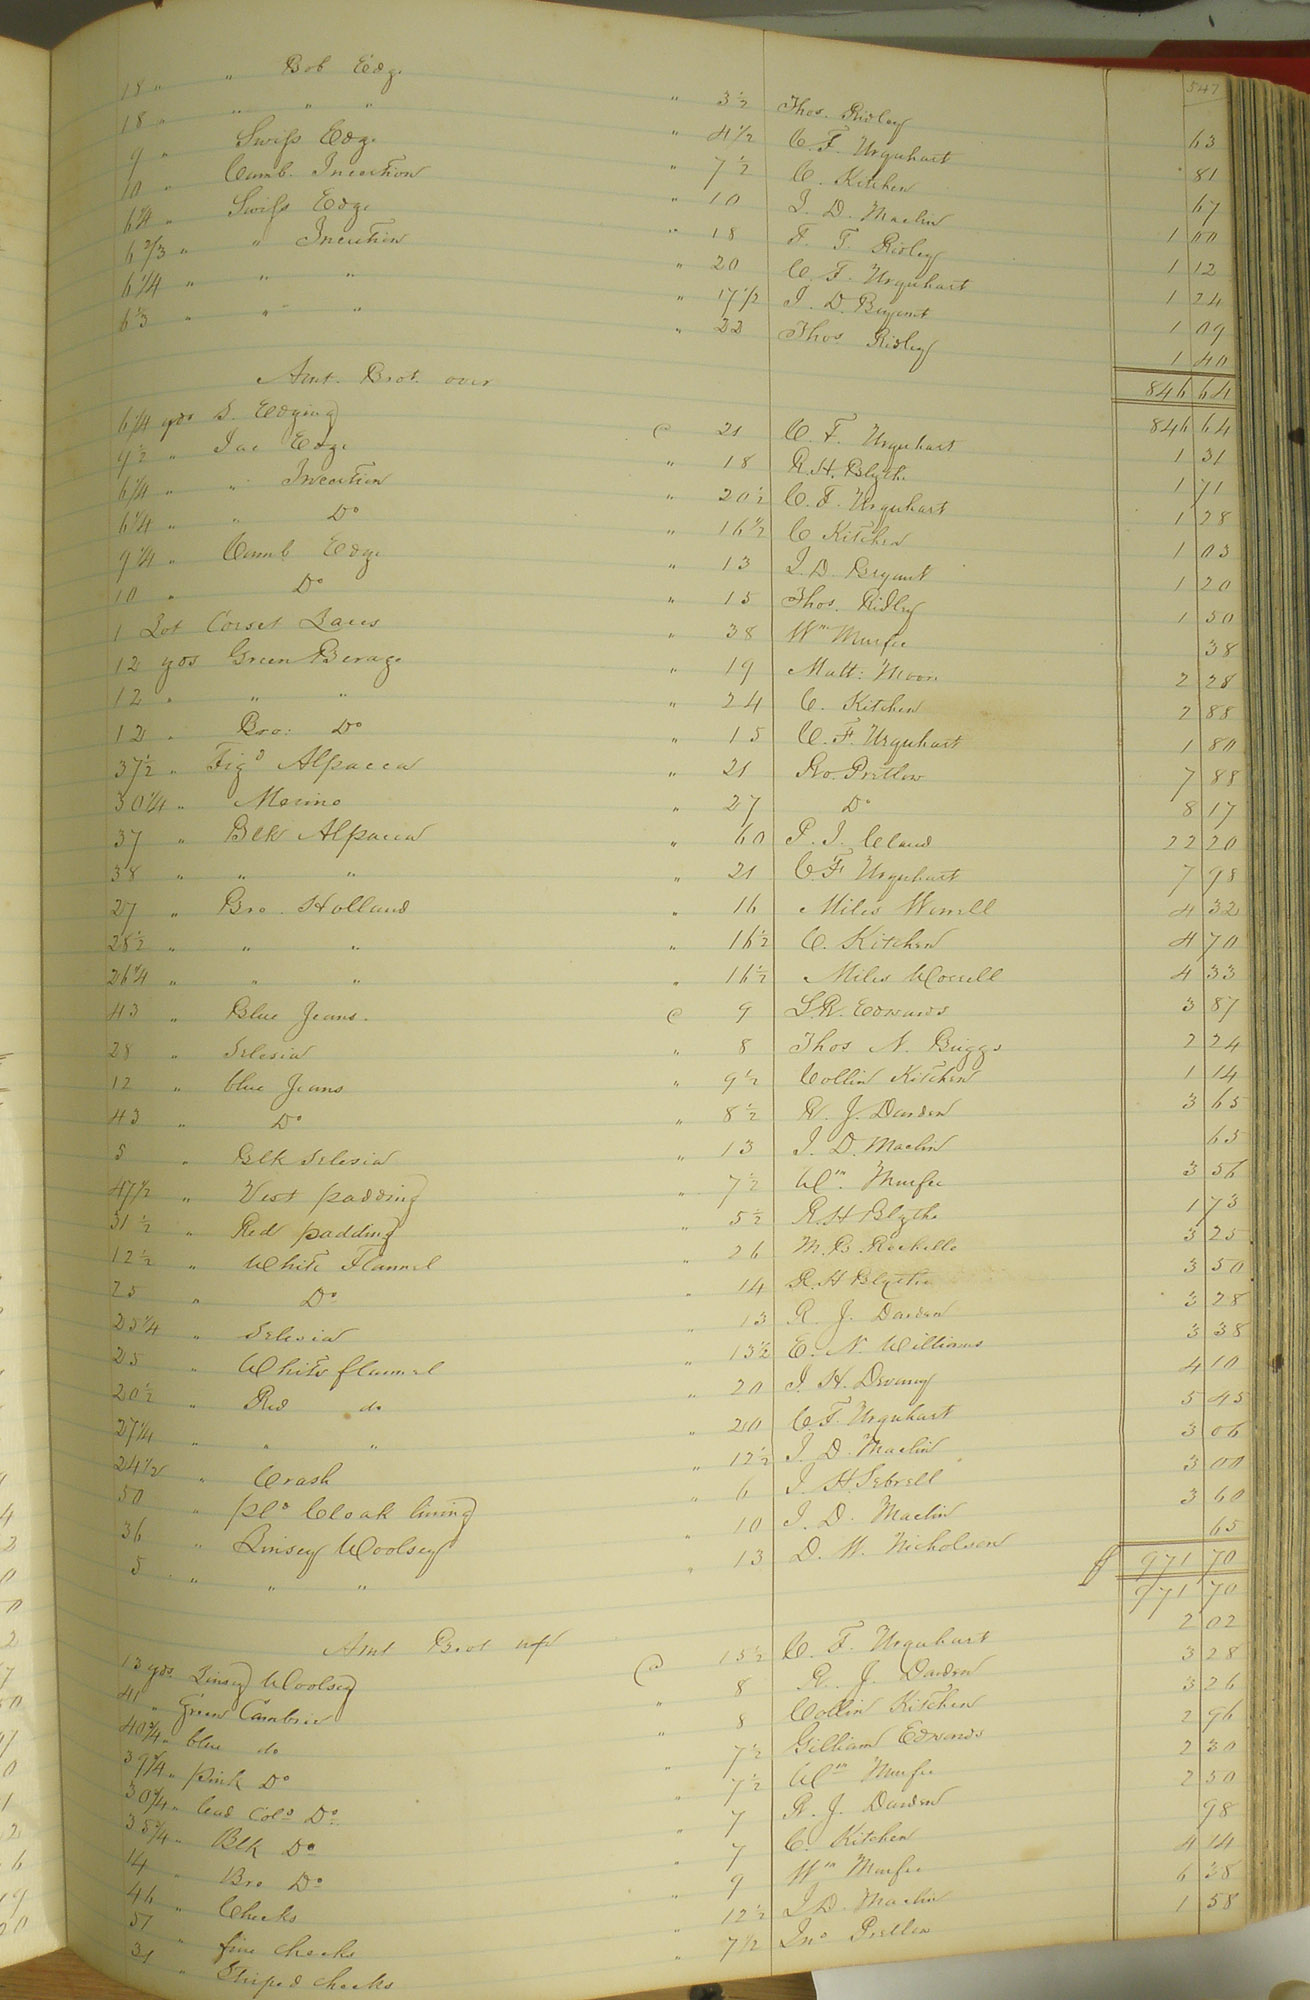 547
18 " " Bob Edg. " 3½ Thos. Ridley 63
18 " " " " " 4½ C. F. Urquhart 81
9 " Swiss Edge " 7½ C. Kitchen 67
10 " Camb. Insertion " 10 J. D. Maclin 1 00
6¼ " Swiss Edge " 18 F. T. Ridley 1 12
6⅔ " " Insertion " 20 C. F. Urquhart 1 24
6¼ " " " " 17½ J. D. Bryant 1 09
6⅓ " " " " 22 Thos Ridley 1 40
846 64
Amt. Brot. over 846 64
6¼ yds S. Edging @ 21 C. F. Urquhart 1 31
9½ " Jac Edge " 18 R. H. Blythe 1 71
6¼ " " Insertion " 20½ C. F. Urquhart 1 28
6¼ " " Do " 16½ C Kitchen 1 03
9¼ " Camb Edge " 13 J. D. Bryant 1 20
10 " Do " 15 Thos. Ridley 1 50
1 Lot Corset Laces " 38 Wm Murfee 38
12 yds Green Berage " 19 Matt: Moon 2 28
12 " " " " 24 C. Kitchen 2 88
12 " Bro: Do " 15 C. F. Urquhart 1 80
37½ " Figd Alpacca " 21 Pritlow 7 88
30¼ " Merino " 27 Do 8 17
37 " Blk Alpacca " 60 P. J. Claud 22 20
38 " " " " 21 C. F. Urquhart 7 98
27 " Bro. Holland " 16 Miles Worrell 4 32
28½ " " " " 16½ C. Kitchen 4 70
26¼ " " " " 16½ Miles Worrell 4 33
43 " Blue Jeans. @ 9 Edwards 3 87
28 " Silesia " 8 Thos N. Briggs 2 24
12 " blue Jeans " 9½ Collin Kitchen 1 14
43 " Do " 8½ R. J. Darden 3 65
5 " Blk Silesia " 13 J. D. Maclin 65
47½ " Vest padding " 7½ Wm. Murfee 3 56
31½ " Red padding " 5½ R. H Blythe 1 73
12½ " White Flannel " 26 M. B. Rochelle 3 25
25 " Do " 14 R. H Blythe 3 50
25¼ " Silesia " 13 R. J. Darden 3 28
25 " White flannel " 13½ E. N. Williams 3 38
20½ " Red do " 20 J. H. Devany 4 10
27¼ " " " " 20 C. F. Urquhart 5 45
24½ " Crash " 12½ J. D. Maclin 3 06
50 " pld Cloak lining " 6 J. H. Sebrell 3 00
36 " Linsey Woolsey " 10 J. D. Maclin 3 60
5 " " " " 13 D. W. Nicholson 65
$ 971 70
Amt Brot up 971 70
13 yds. Linsey Woolsey @ 15½ C. F. Urquhart 2 02
41 " Green Cambric " 8 R. J. Darden 3 28
40¾ " blue do " 8 Collin Kitchen 3 26
39¼ " pink Do " 7½ Gilliam Edwards 2 96
30¾ " lead Cold Do " 7½ Wm Murfee 2 30
35¾ " Blk Do " 7 R. J. Darden 2 50
14 " Bro Do " 7 C. Kitchen 98
46 " Checks " 9 Wm Murfee 4 14
51 " fine checks " 12½ J. D. Maclin 6 38
21 " Striped checks " 7½ Jno Pretlow 1 58